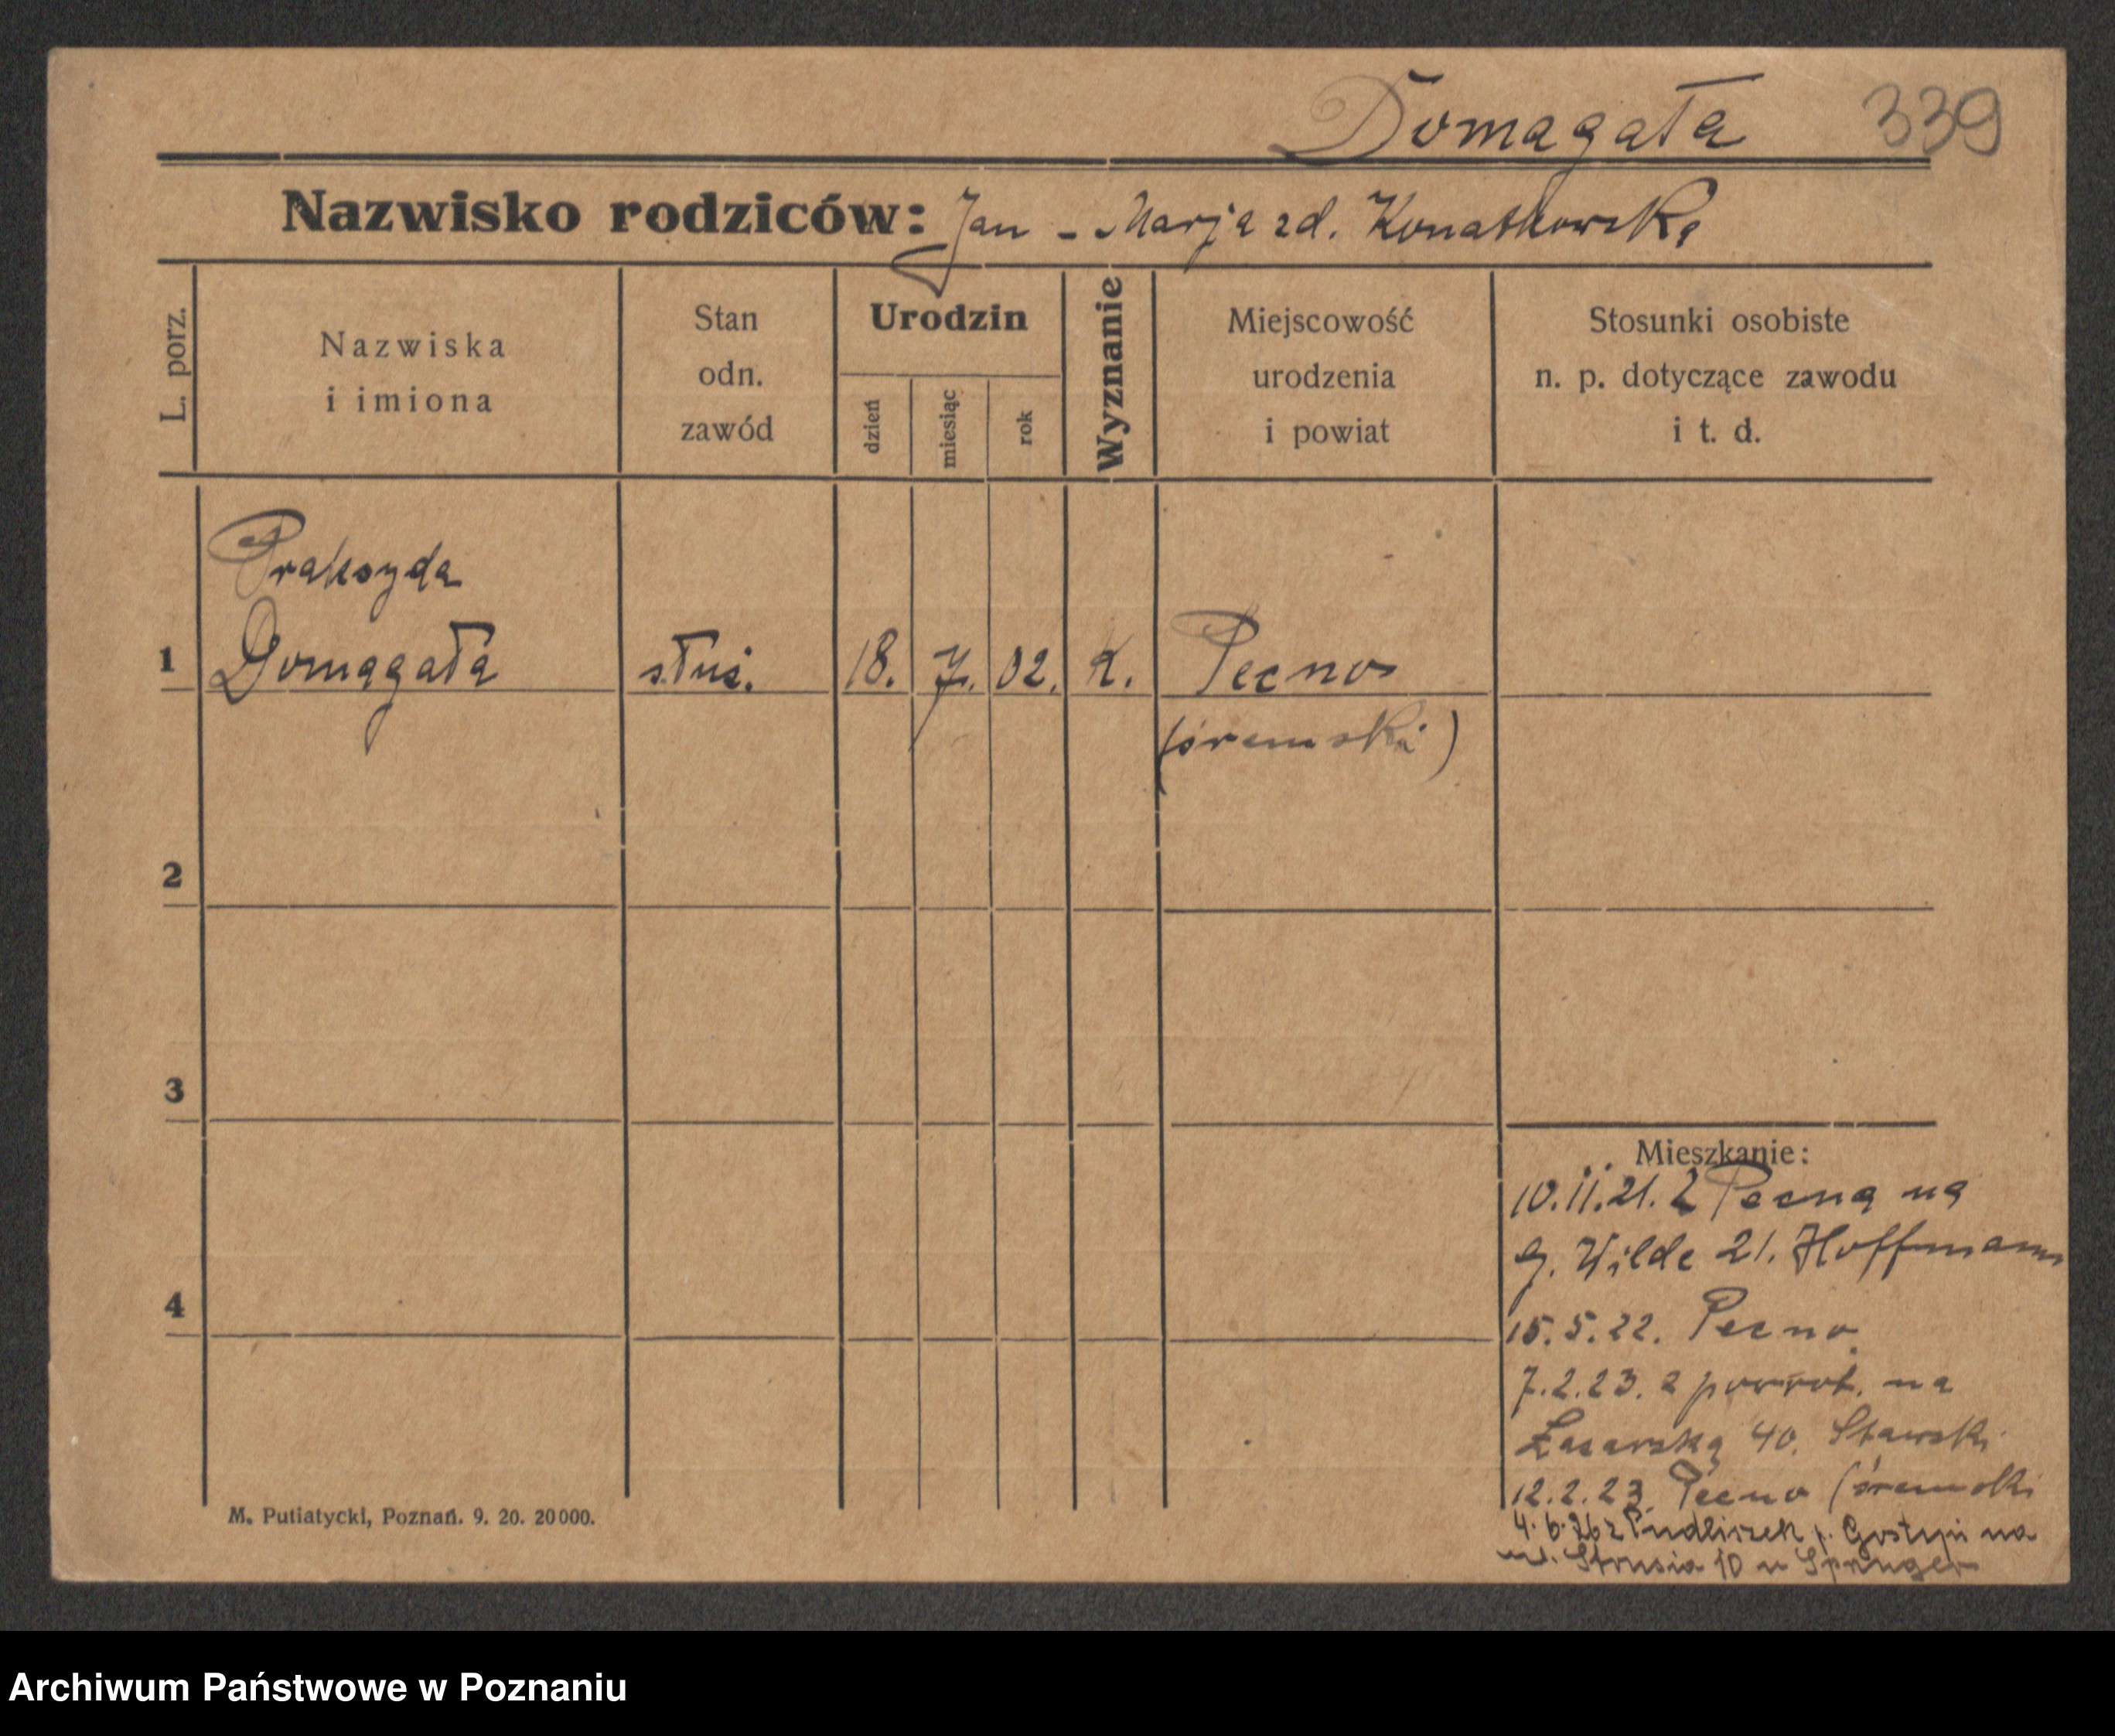 Domagała 339
Nazwisko rodziców: Jan - Marja zd. Konatkowska
L. porz.
Nazwiska
i imiona
Stan
odn.
zawód
Urodzin
dzień
miesiąc
rok
Wyznanie
Miejscowość
urodzenia
i powiat
Stosunki osobiste
n. p. dotyczące zawodu
i t. d.
Praksyda
1 Domagała służ. 18. 7. 02. k. Pecno
(śremski)
2
3
4
Mieszkanie:
10.11.21. z Pecna na
G. Wilde 21. Hoffmann
15.5.22. Pecno
7.2.23. z powrot. na
Łazarską 40. Stawski
12.2.23. Pecno (śremski
4.6.26 z Pudliszek p. Gostyń na
ul. Strusia 10 u Springer
M. Putiatycki, Poznań. 9. 20. 20000.
Archiwum Państwowe w Poznaniu